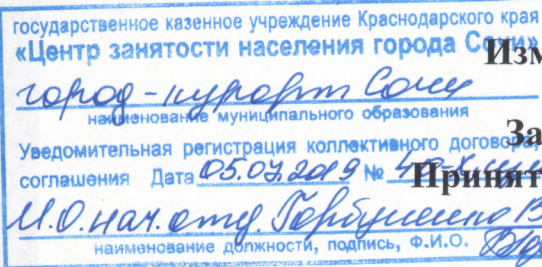 государственное казенное учреждение Краснодарского края
«Центр занятости населения города Сочи»
Изм
город-курорт Сочи
наименование муниципального образования
За
Уведомительная регистрация коллективного договора,
соглашения Дата 05.07.2019 №
Принят
И.О. нач. отд. Горбущенко В
наименование должности, подпись, Ф.И.О.